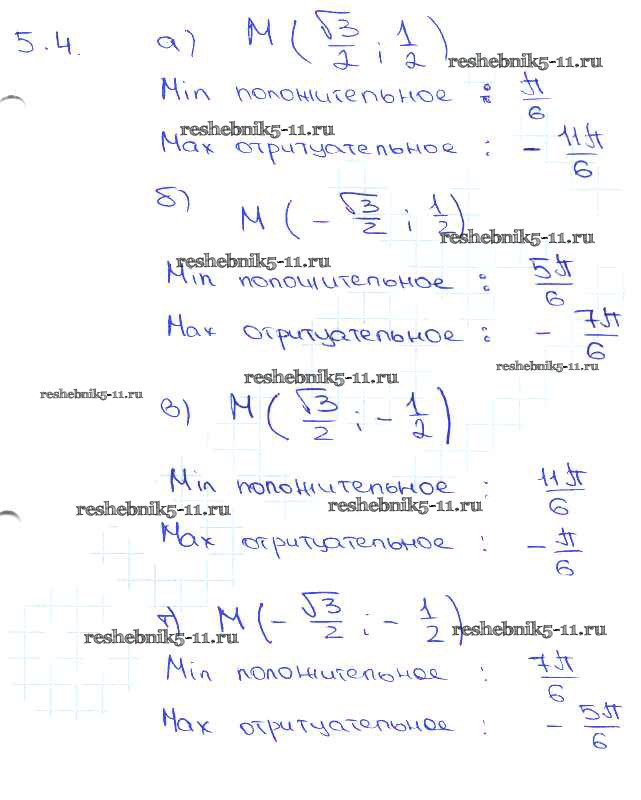 5.4. а) M (√3/2 ; 1/2)
reshebnik5-11.ru
Min положительное : π/6
reshebnik5-11.ru
Max отрицательное : - 11π/6
б) M (- √3/2 ; 1/2)
reshebnik5-11.ru
reshebnik5-11.ru
Min положительное : 5π/6
Max отрицательное : - 7π/6
reshebnik5-11.ru
reshebnik5-11.ru
reshebnik5-11.ru
в) M (√3/2 ; - 1/2)
Min положительное : 11π/6
reshebnik5-11.ru
reshebnik5-11.ru
Max отрицательное : - π/6
г) M (- √3/2 ; - 1/2)
reshebnik5-11.ru
reshebnik5-11.ru
Min положительное : 7π/6
Max отрицательное : - 5π/6